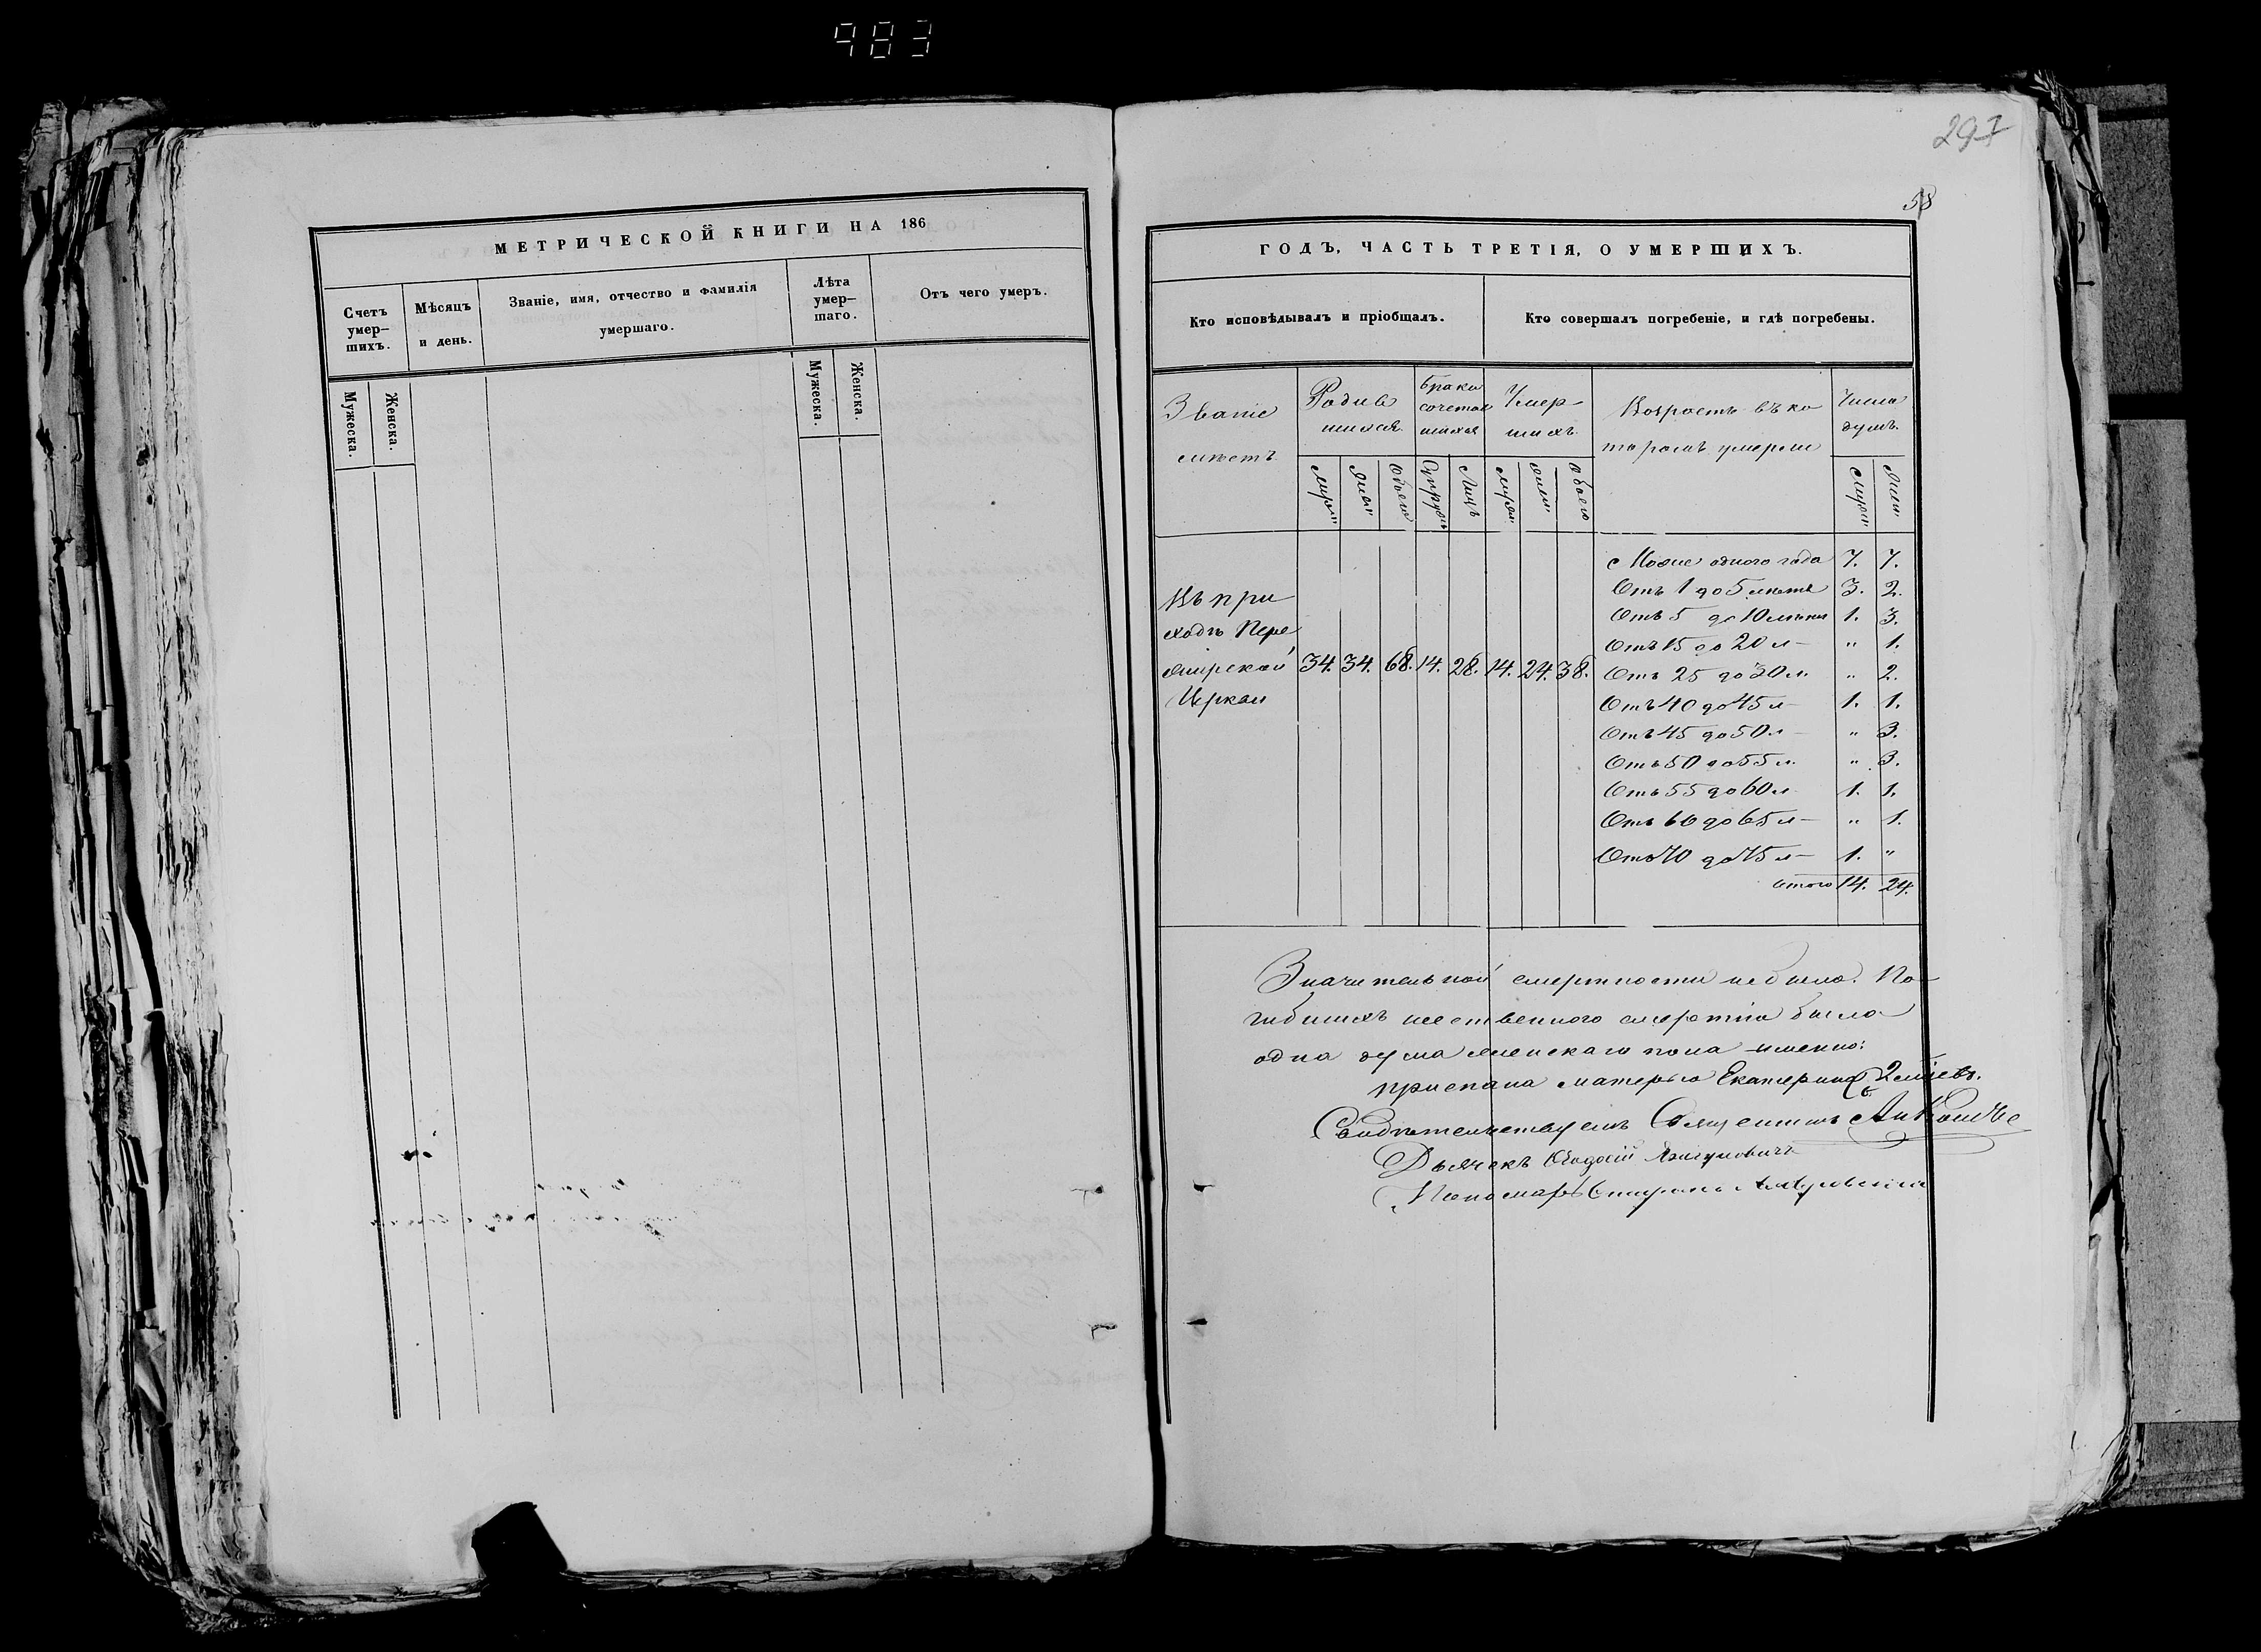 983
297
58
МЕТРИЧЕСКОЙ КНИГИ НА 186
Счетъ умер-шихъ.
Мѣсяцъ и день.
Званіе, имя, отчество и фамилія умершаго.
Лѣта умер-шаго.
Отъ чего умеръ.
Мужеска.
Женска.
Мужеска.
Женска.
ГОДЪ, ЧАСТЬ ТРЕТІЯ, О УМЕРШИХЪ.
Кто исповѣдывалъ и пріобщалъ.
Кто совершалъ погребеніе, и гдѣ погребены.
Званіе мѣстъ
Родив шихся
Брако сочетав шихся
Умер- шихъ
Возростъ въ ко торомъ умерли
Число душъ.
Муж"
Жен"
Обоего
Супруж
Лицъ
Муж"
Жен"
Обоего
Муж"
Жен"
Въ при
ходѣ Пере
жирской 34. 34. 68. 14. 28. 14. 24. 38.
Церкви
Можне одного года 7. 7.
Отъ 1 до 5 лѣтъ 3. 2.
Отъ 5 до 10 лѣтъ 1. 3.
Отъ 15 до 20 л– " 1.
Отъ 25 до 30 л. " 2.
Отъ 40 до 45 л– 1. 1.
Отъ 45 до 50 л– " 3.
Отъ 50 до 55 л. " 3.
Отъ 55 до 60 л. 1. 1.
Отъ 60 до 65 л– " 1.
Отъ 70 до 75 л– 1. "
Итого 14. 24.
Значительной смертности небыло. По-
гибшихъ неественного смертію было
одна душа женскаго пола именно:
приспана матерью Екатерина 2
Свидѣтельствуемъ Священникъ
Дьячекъ Ѳеодосій
Пономарь